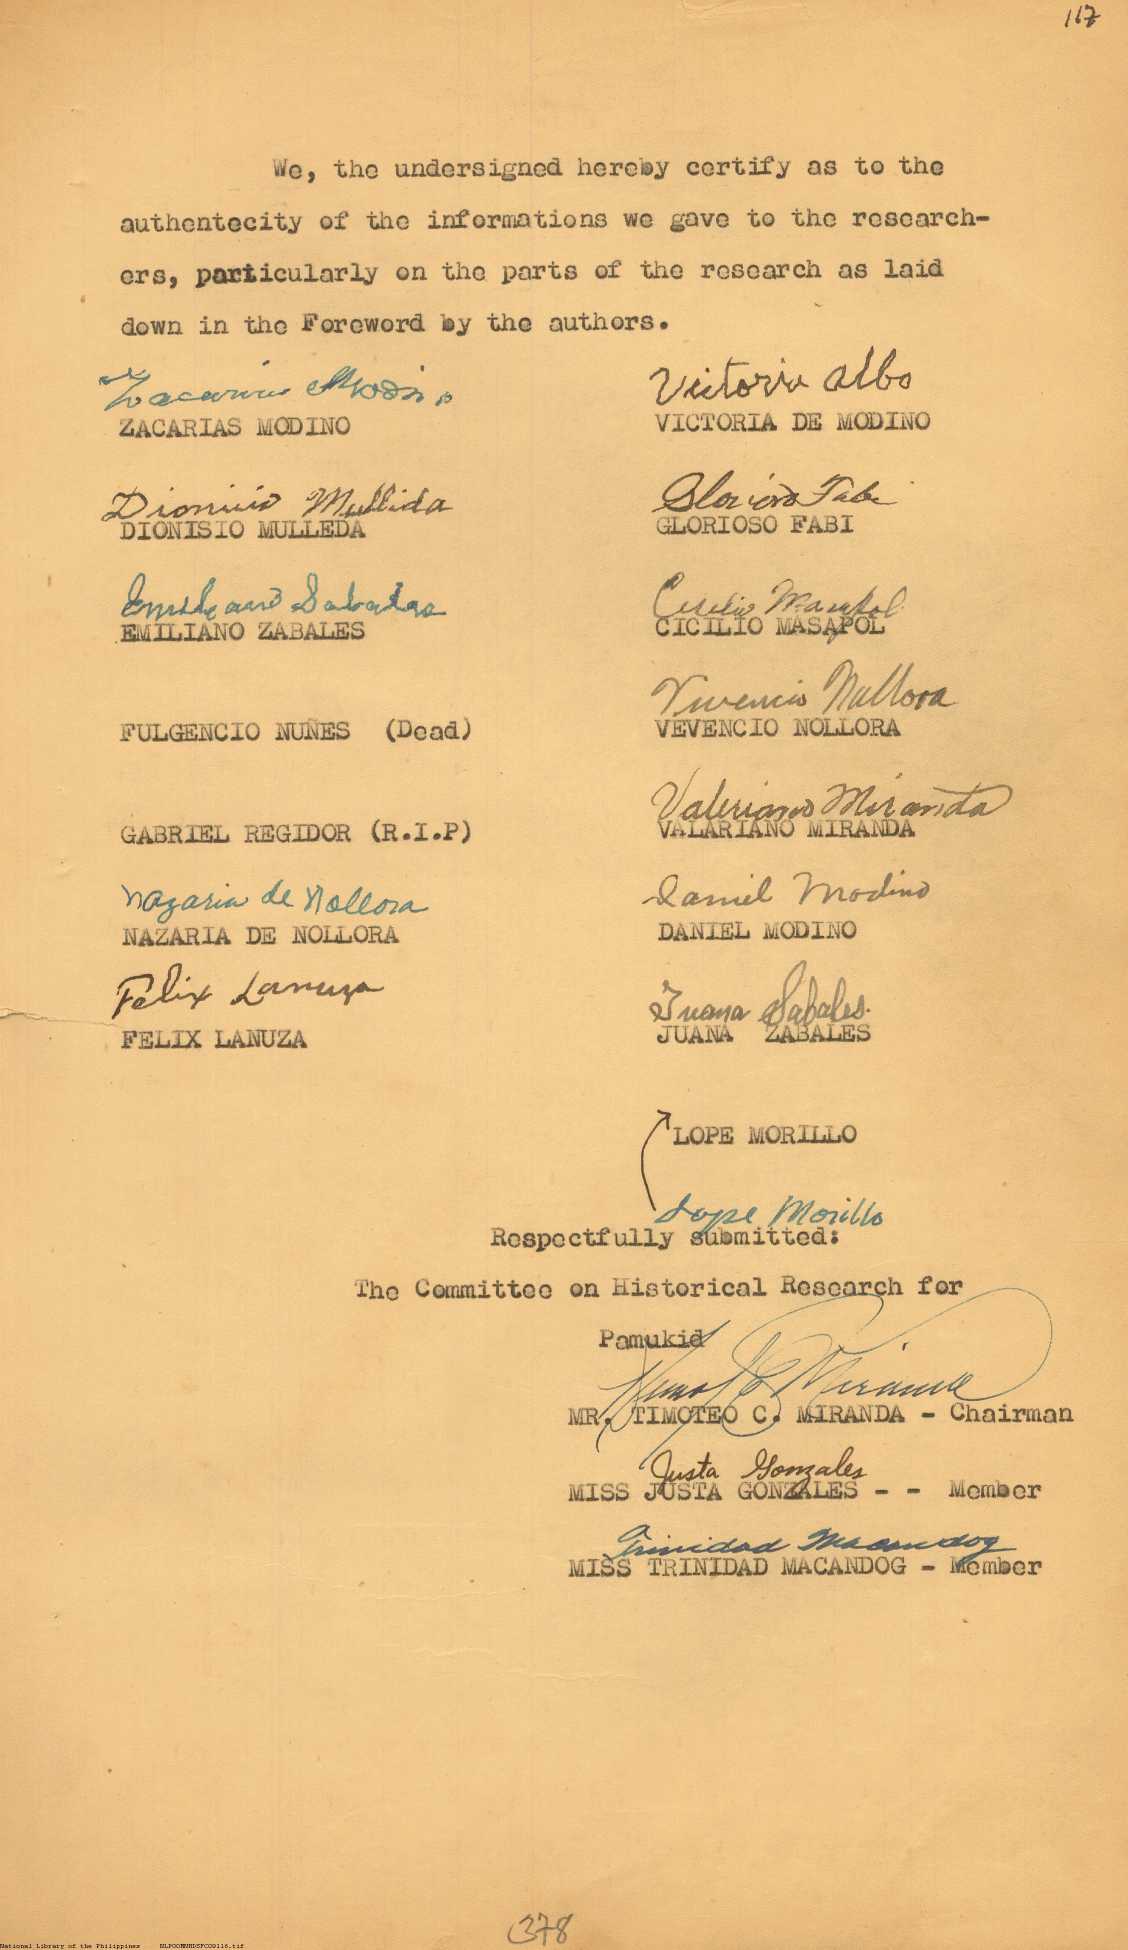 117
We, the undersigned hereby certify as to the
authentecity of the informations we gave to the research-
ers, particularly on the parts of the research as laid
down in the Foreword by the authors.
Zacarias Modino
ZACARIAS MODINO
Victoria Albo
VICTORIA DE MODINO
Dionicio Mullida
DIONISIO MULLEDA
Glorioso Fabi
GLORIOSO FABI
Emiliano Sabales
EMILIANO ZABALES
Cicilio Masapol
CICILIO MASAPOL
FULGENCIO NUÑES (Dead)
Vivencio Nollora
VEVENCIO NOLLORA
GABRIEL REGIDOR (R.I.P)
Valeriano Miranda
VALARIANO MIRANDA
Nazaria de Nollora
NAZARIA DE NOLLORA
Daniel Modino
DANIEL MODINO
Felix Lanuza
FELIX LANUZA
Juana Sabales.
JUANA ZABALES
LOPE MORILLO
Lope Morillo
Respectfully submitted:
The Committee on Historical Research for
Pamukid
MR. TIMOTEO C. MIRANDA - Chairman
Justa Gonzales
MISS JUSTA GONZALES - - Member
Trinidad Macandog
MISS TRINIDAD MACANDOG - Member
378
National Library of the Philippines